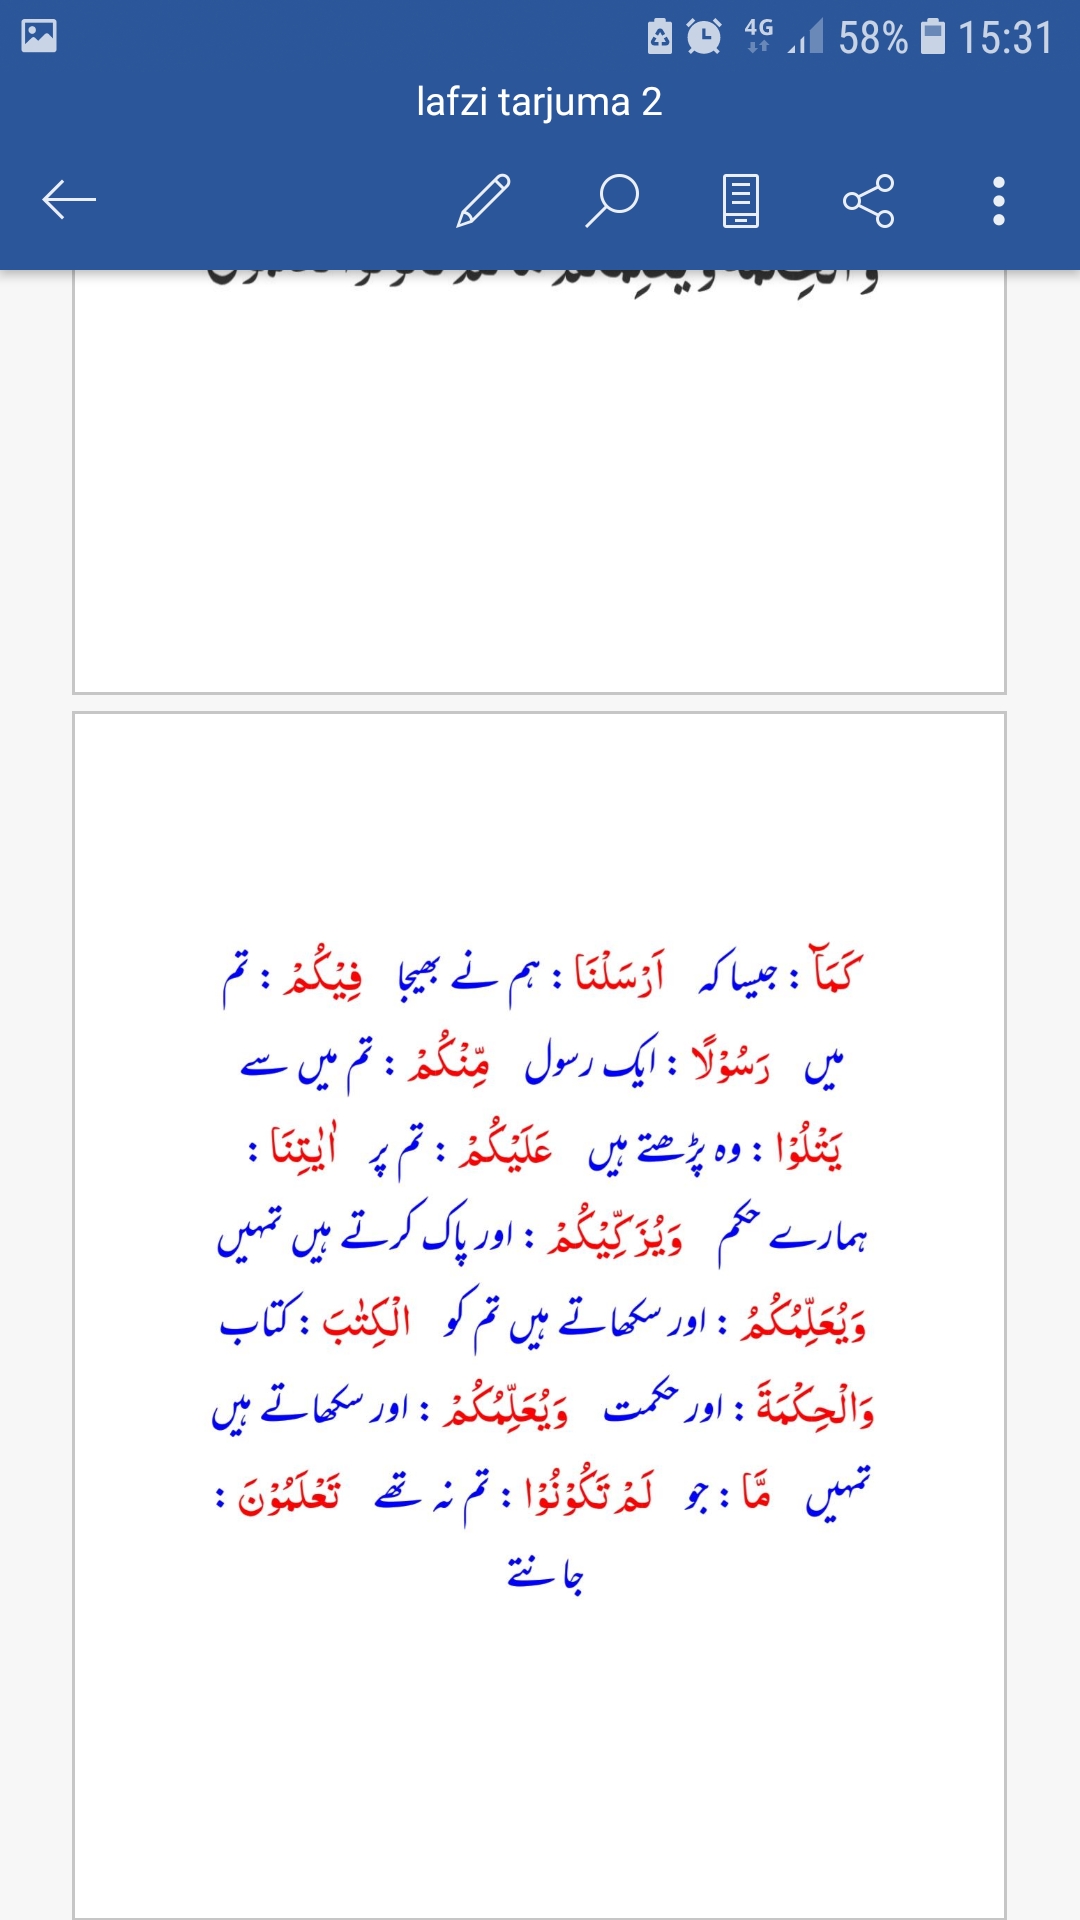 4G 58% 15:31
lafzi tarjuma 2
كَمَآ : جیسا کہ اَرْسَلْنَا : ہم نے بھیجا فِيْكُمْ : تم
میں رَسُوْلًا : ایک رسول مِّنْكُمْ : تم میں سے
يَتْلُوْا : وہ پڑھتے ہیں عَلَيْكُمْ : تم پر اٰيٰتِنَا :
ہمارے حکم وَيُزَكِّيْكُمْ : اور پاک کرتے ہیں تمہیں
وَيُعَلِّمُكُمُ : اور سکھاتے ہیں تم کو الْكِتٰبَ : کتاب
وَالْحِكْمَةَ : اور حکمت وَيُعَلِّمُكُمْ : اور سکھاتے ہیں
تمہیں مَّا : جو لَمْ تَكُوْنُوْا : تم نہ تھے تَعْلَمُوْنَ :
جانتے